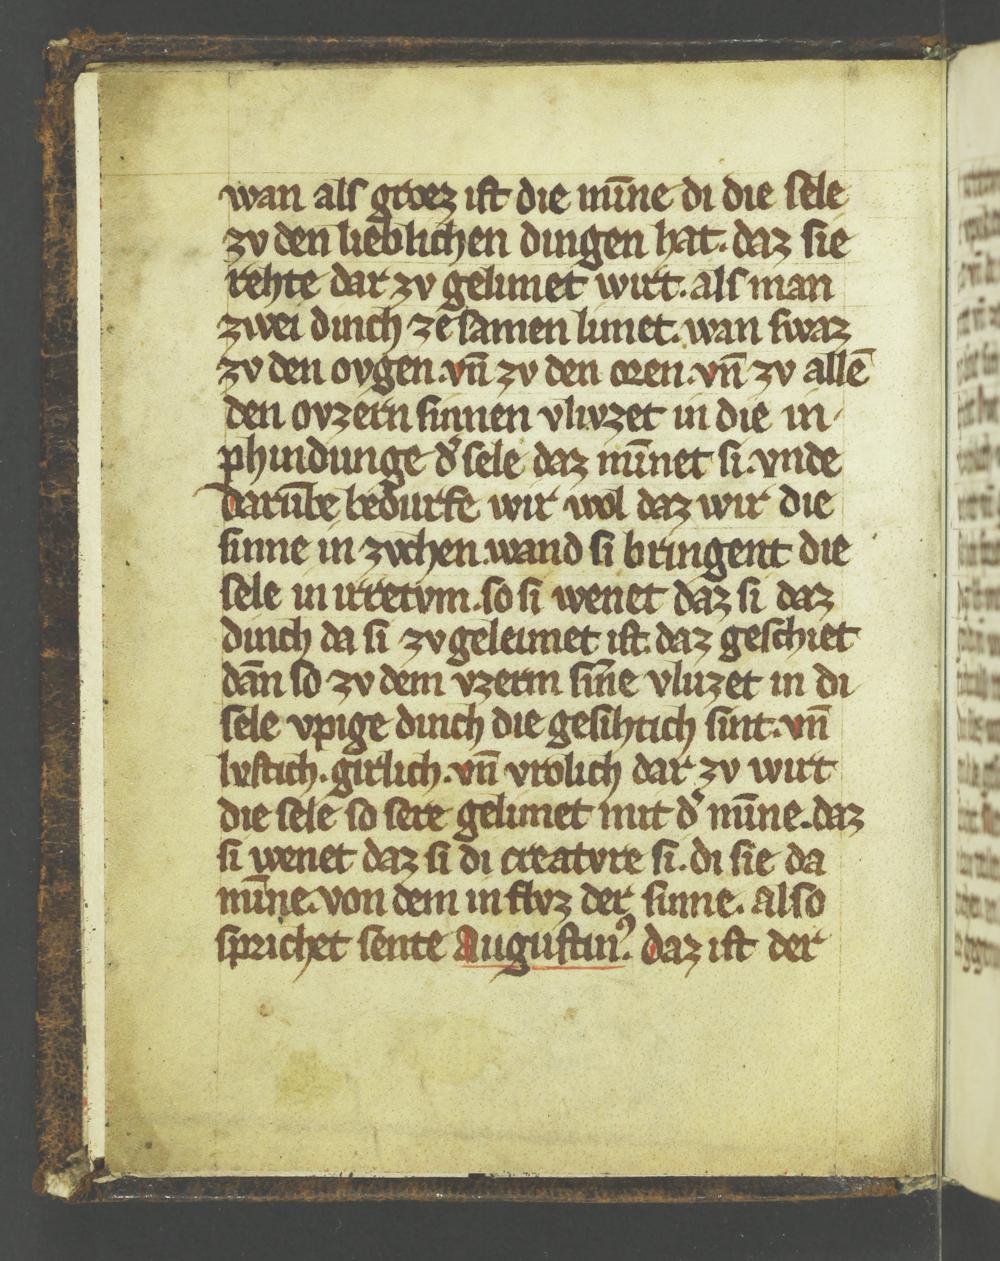 wan alſ groez iſt die mīne di die ſele
zv den lieblichen dingen hat. daz ſie
rehte dar zv gelimet wirt. alſ man
zwei dinch ze ſamen limet. wan ſwaz
zv den ovgen. vn̄ zv den oren. vn̄ zv allē
den ovzern ſinnen vlivzet in die in
phindunge d͛ ſele daz mīnet ſi. vnde
darūbe bedurfe wir wol daz wir die
ſinne in zvchen. wand ſi bringent die
ſele in irretvm. ſo ſi wenet daz ſi daz
dinch da ſi zv geleimet iſt. daz geſchiet
dān ſo zv dem vzerm ſiñe vluzet in di
ſele vpige dinch die geſihtich ſint. vn̄
lvſtich. girlich. vn̄ vrolich dar zv wirt
die ſele ſo ſere gelimet mit d͛ mīne. daz
ſi wenet daz ſi di creatvre ſi. di ſie da
mīne. von dem in flvz der ſinne. alſo
ſprichet ſente Auguſtinꝰ. daz iſt der